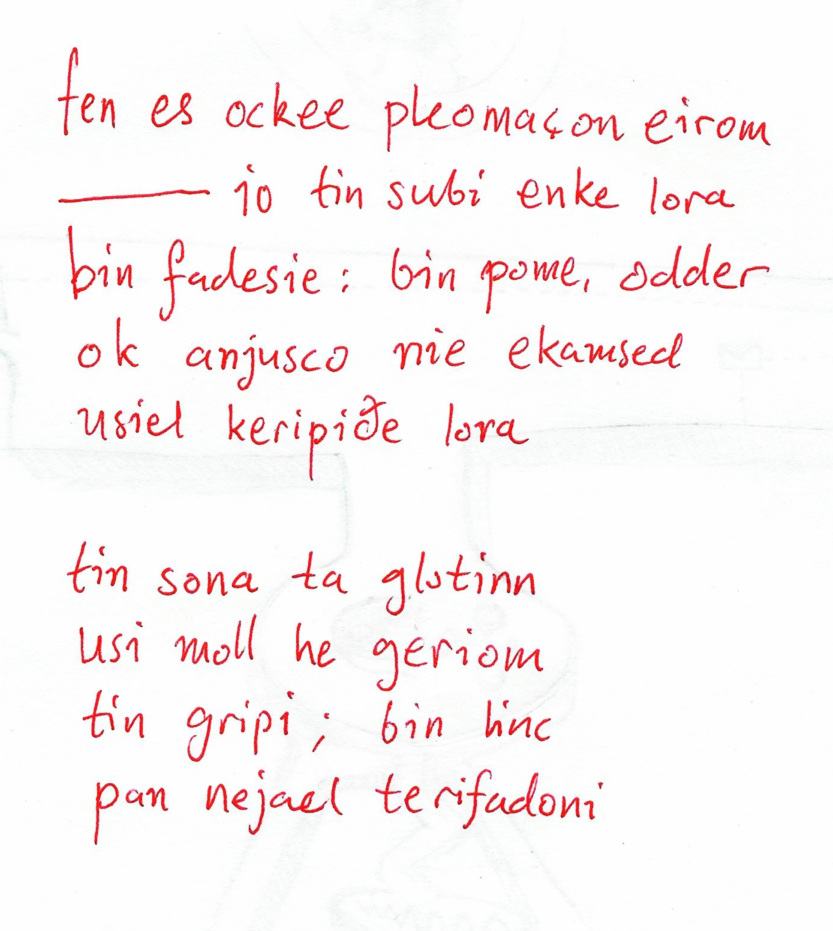 fen es ockee pleomaçon eirom
——— io tin subi enke lora
bin fadesie: bin pome, odder
ok anjusco nie ekamsed
usiel keripiðe lora
tin sona ta glotinn
usi moll he geriom
tin gripi; bin linc
pan nejael terifadoni